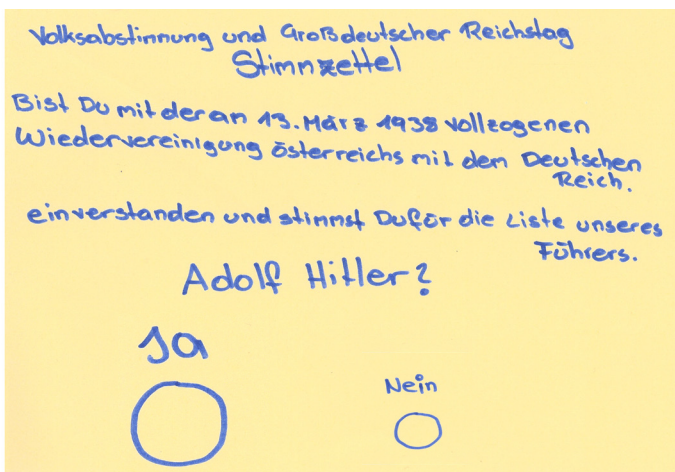 Volksabstimnung und Großdeutscher Reichstag
Stimnzettel
Bist Du mit der an 13. März 1938 vollzogenen
Wiedervereinigung österreichs mit dem Deutschen
Reich.
einverstanden und stimmst Du für die Liste unseres
Führers.
Adolf Hitler?
Ja
Nein